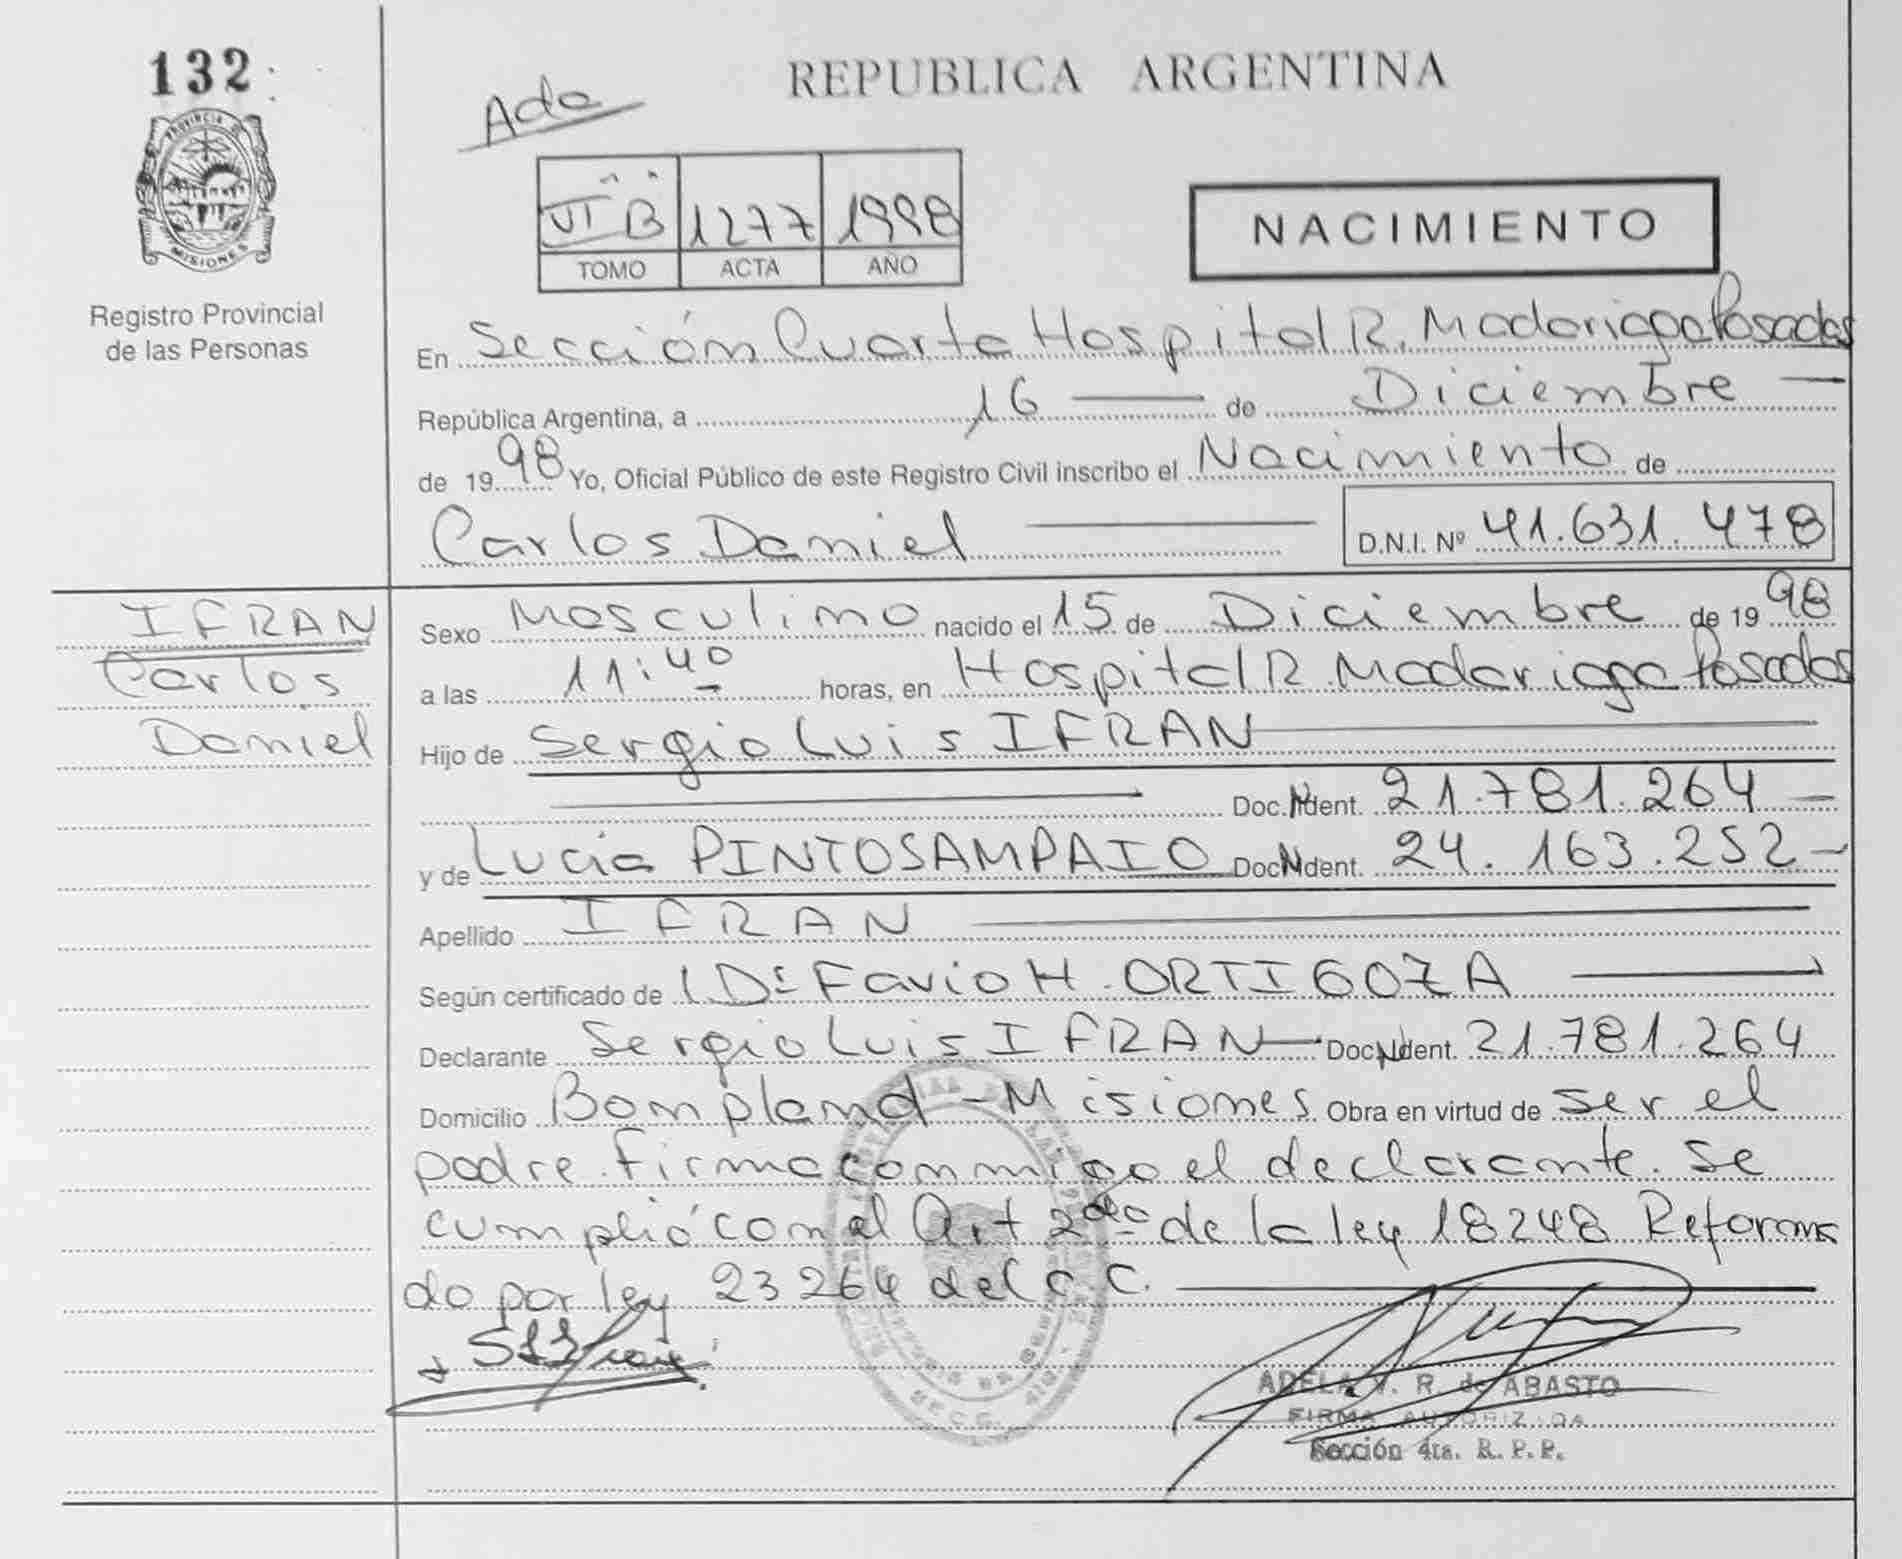 132
REPUBLICA ARGENTINA
Ada
PROVINCIA DE
MISIONES
VI "B" 1277 1998
TOMO ACTA AÑO
NACIMIENTO
Registro Provincial
de las Personas
En Sección Cuarta Hospital R. Madariaga Posadas
República Argentina, a 16 de Diciembre
de 1998 Yo, Oficial Público de este Registro Civil inscribo el Nacimiento de
Carlos Daniel D.N.I. Nº 41.631.478
IFRAN
Carlos
Daniel
Sexo Masculino nacido el 15 de Diciembre de 1998
a las 11:40 horas, en Hospital R. Madariaga Posadas
Hijo de Sergio Luis IFRAN
Doc. Ident. 21.781.264
y de Lucia PINTOSAMPAIO Doc. Ident. 24.163.252
Apellido IFRAN
Según certificado de Dr Favio H. ORTIGOZA
Declarante Sergio Luis IFRAN Doc. Ident. 21.781.264
Domicilio Bompland - Misiones Obra en virtud de ser el
padre. Firma conmigo el declarante. Se
cumplió con el Art 2do de la ley 18248 Reforma
do por ley 23264 del C.C.
ADELA V. R. de ABASTO
FIRMA AUTORIZADA
Sección 4ta. R. P. P.